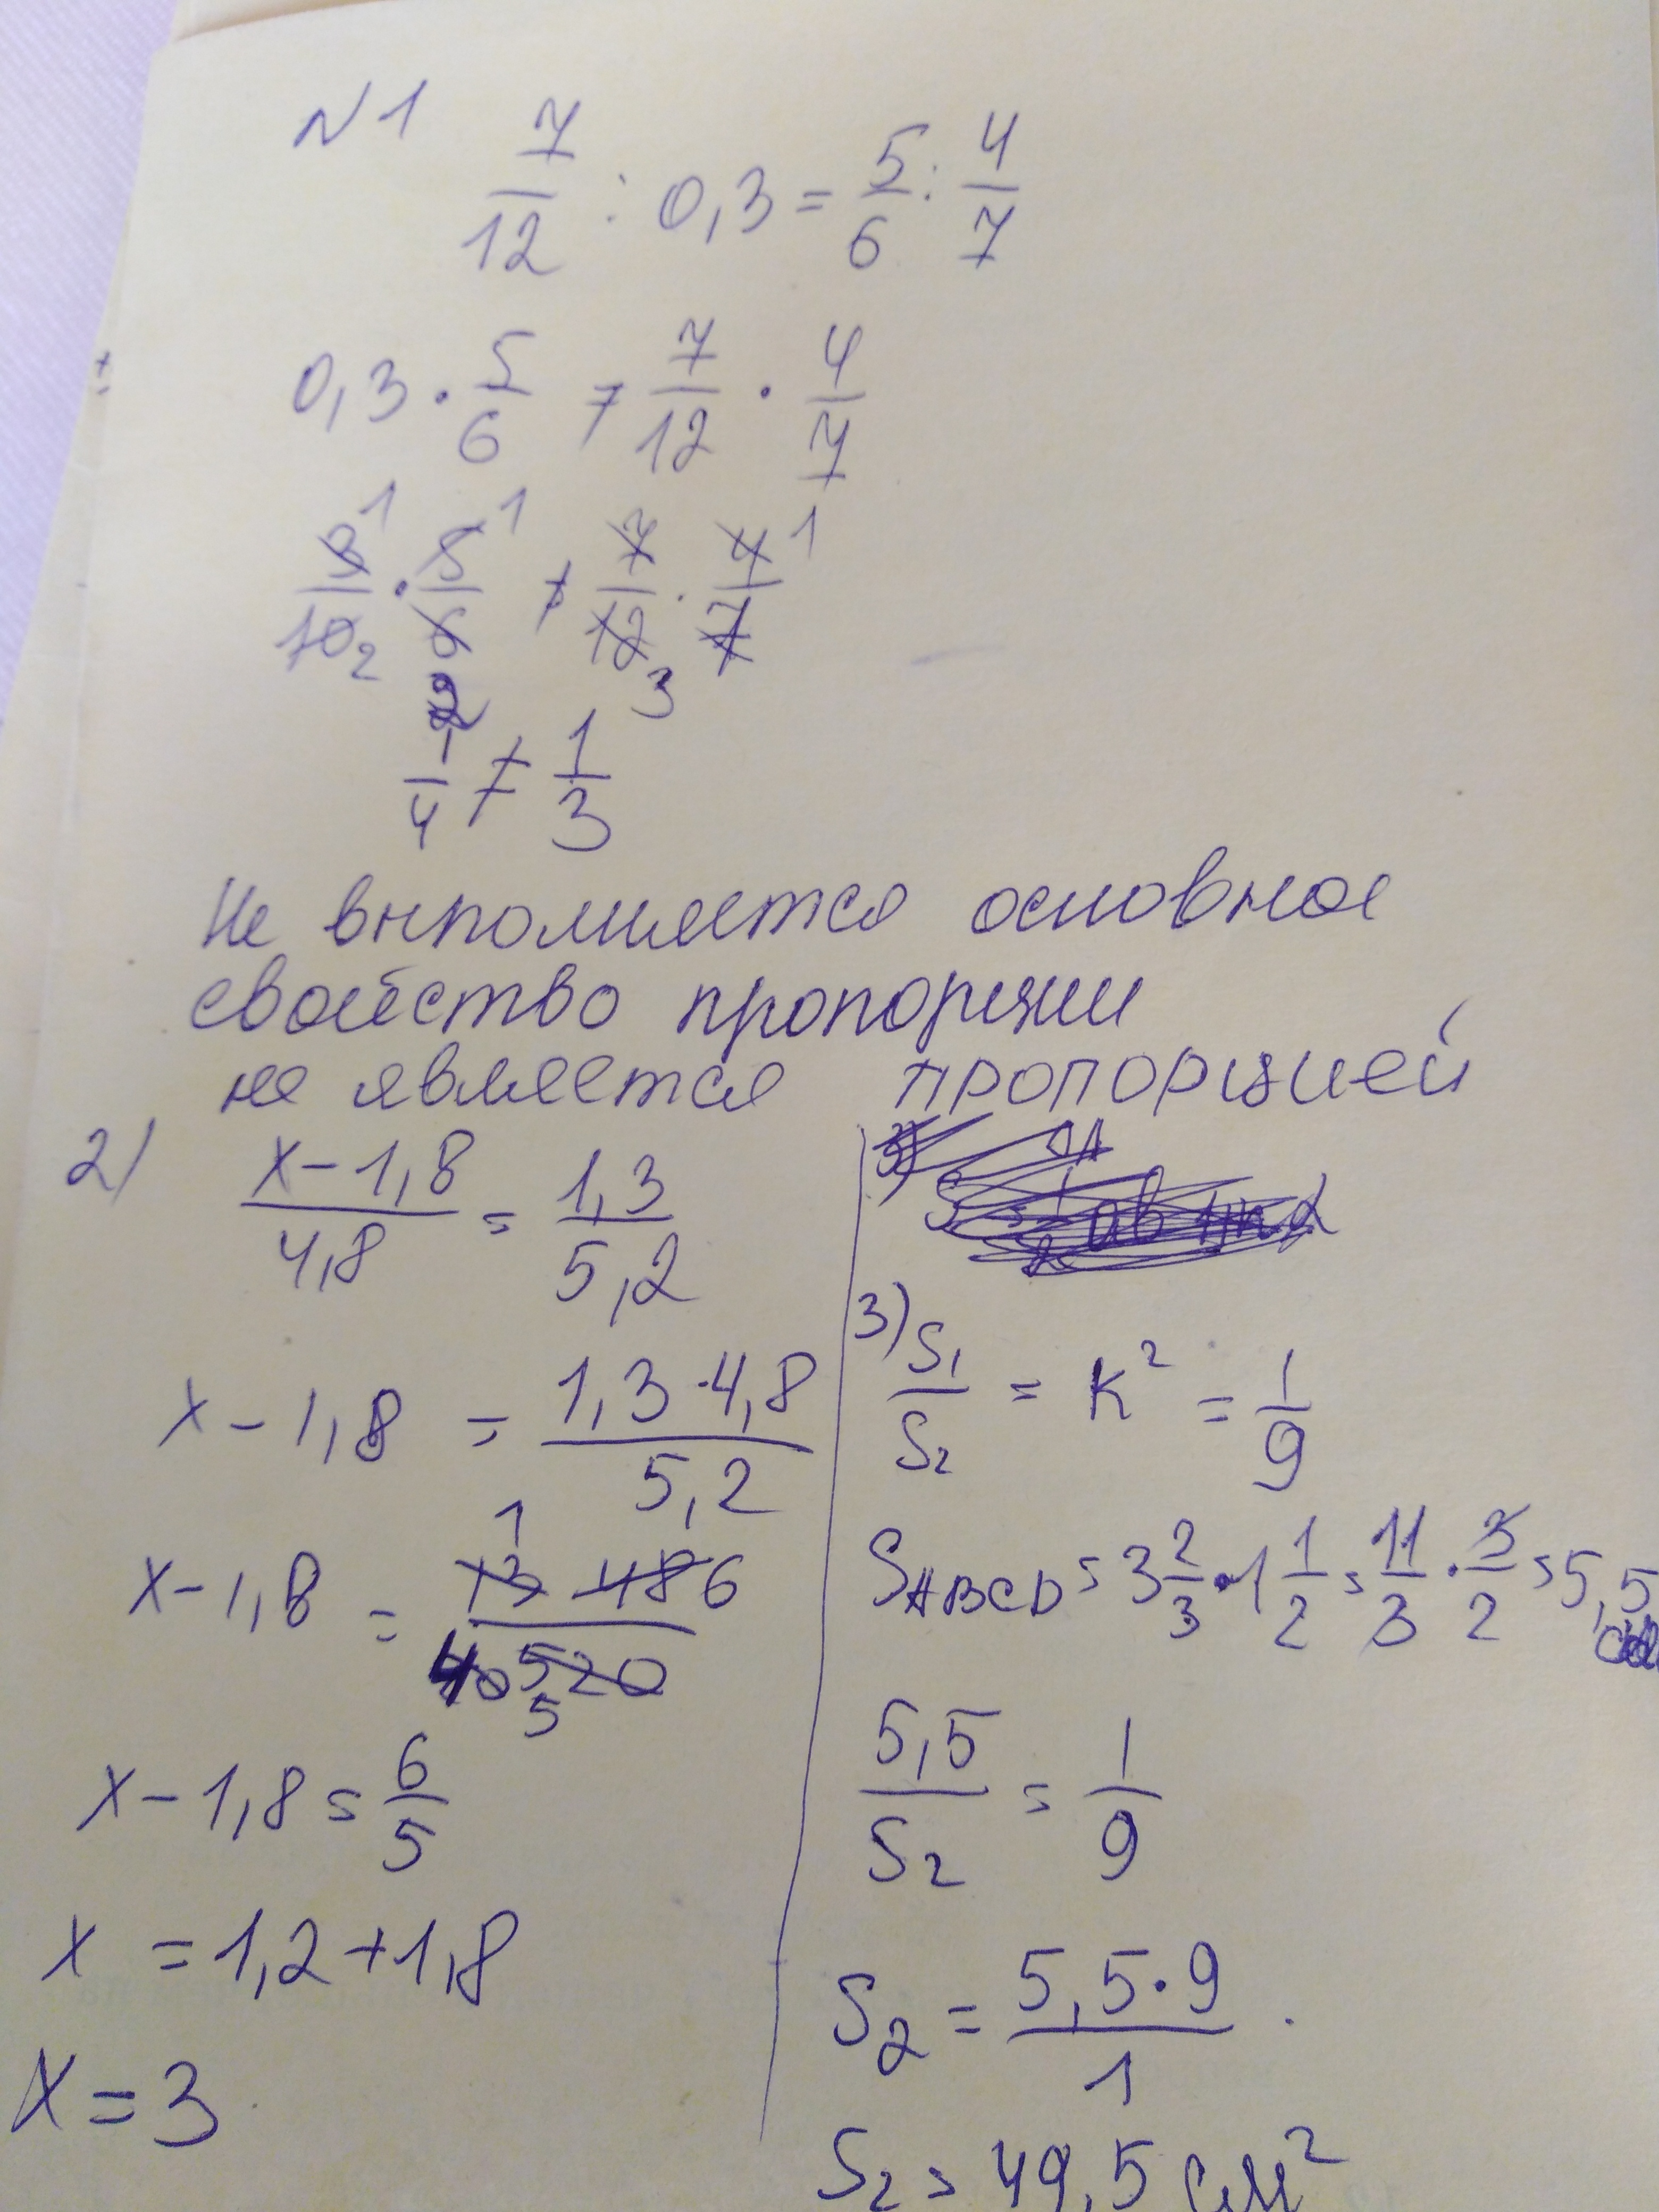 N1 7/12 : 0,3 = 5/6 : 4/7
0,3 · 5/6 ≠ 7/12 · 4/7
3/10 · 5/6 ≠ 7/12 · 4/7
1 1 1
2 2 3
1/4 ≠ 1/3
Не выполняется основное
свойство пропорции
не является пропорцией
2) (x-1,8)/4,8 = 1,3/5,2
x-1,8 = (1,3·4,8)/5,2
1
x-1,8 = (13 48 6)/(40 520)
5
x-1,8 = 6/5
x = 1,2+1,8
x = 3
3)
3) S1/S2 = K² = 1/9
SABCD = 3 2/3 · 1 1/2 = 11/3 · 3/2 = 5,5
5,5/S2 = 1/9
S2 = (5,5·9)/1
S2 = 49,5 см²